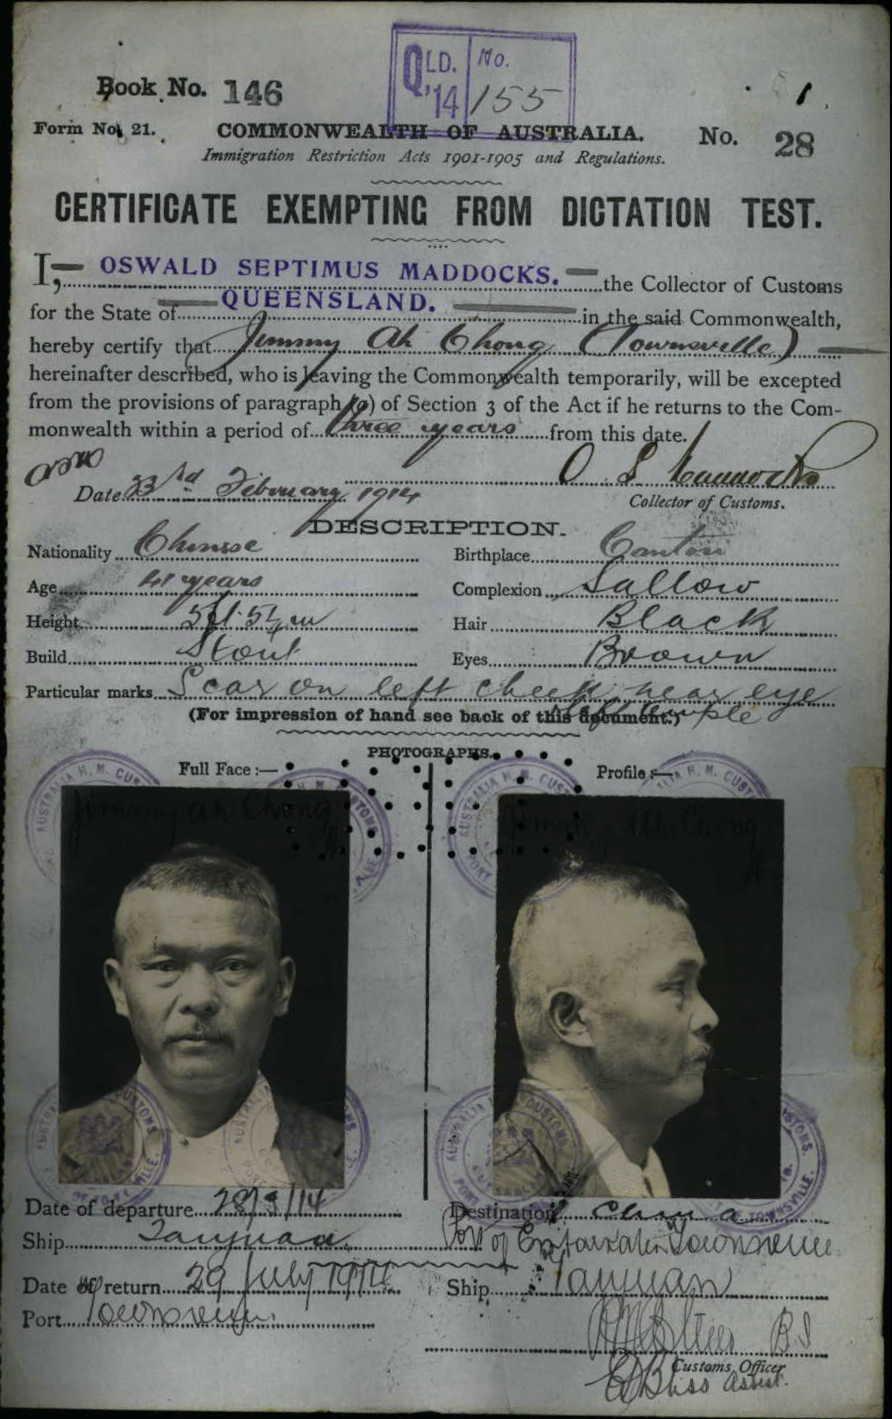 QLD. No.
'14 155
Book No. 146
1.
Form No. 21.
COMMONWEALTH OF AUSTRALIA.
No. 28
Immigration Restriction Acts 1901-1905 and Regulations.
CERTIFICATE EXEMPTING FROM DICTATION TEST.
I, OSWALD SEPTIMUS MADDOCKS. the Collector of Customs
for the State of QUEENSLAND. in the said Commonwealth,
hereby certify that Jimmy Ah Chong (Townsville)
hereinafter described, who is leaving the Commonwealth temporarily, will be excepted
from the provisions of paragraph (a) of Section 3 of the Act if he returns to the Com-
monwealth within a period of three years from this date.
O S Maddocks
Date 23rd February 1914
Collector of Customs.
DESCRIPTION.
Nationality Chinese Birthplace Canton
Age 41 years Complexion Sallow
Height 5ft 5½in Hair Black
Build Stout Eyes Brown
Particular marks Scar on left cheek near eye
left temple
(For impression of hand see back of this document.)
PHOTOGRAPHS.
Full Face:— Profile:—
Jimmy Ah Chong Jimmy Ah Chong
AUSTRALIA H. M. CUSTOMS
TOWNSVILLE.
Date of departure 28/3/14 Destination China
Ship Taiyuan Port of Townsville
Date of return 29 July 1914 Ship Taiyuan
Port Townsville
Customs Officer
Bliss Assist.